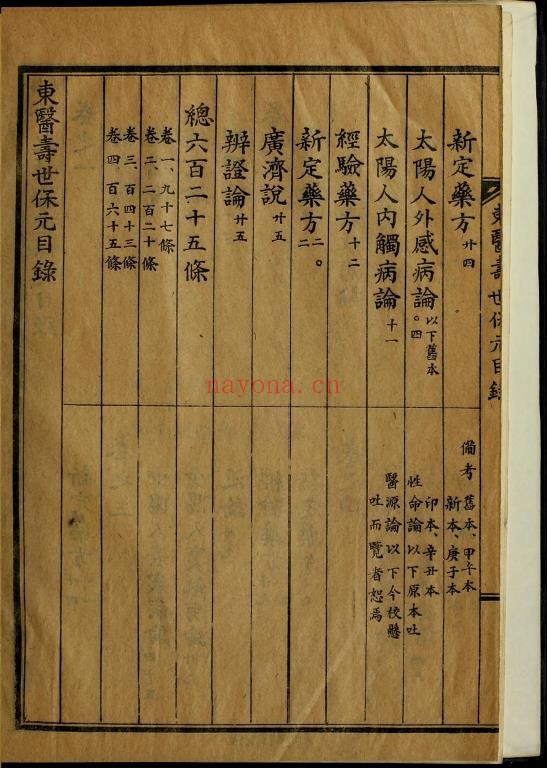 東醫壽世保元目錄
新定藥方 廿四
太陽人外感病論 以下舊本 〇四
太陽人內觸病論 十一
經驗藥方 十二
新定藥方 二〇二
廣濟說 廿五
辨證論 廿五
總六百二十五條
卷一、九十七條
卷二、二百二十條
卷三、百四十三條
卷四、百六十五條
東醫壽世保元目錄
備考 舊本、甲午本
新本、庚子本
印本、辛丑本
性命論以下原本吐
醫源論以下今校懸
吐而覽者恕焉
nayona.cn